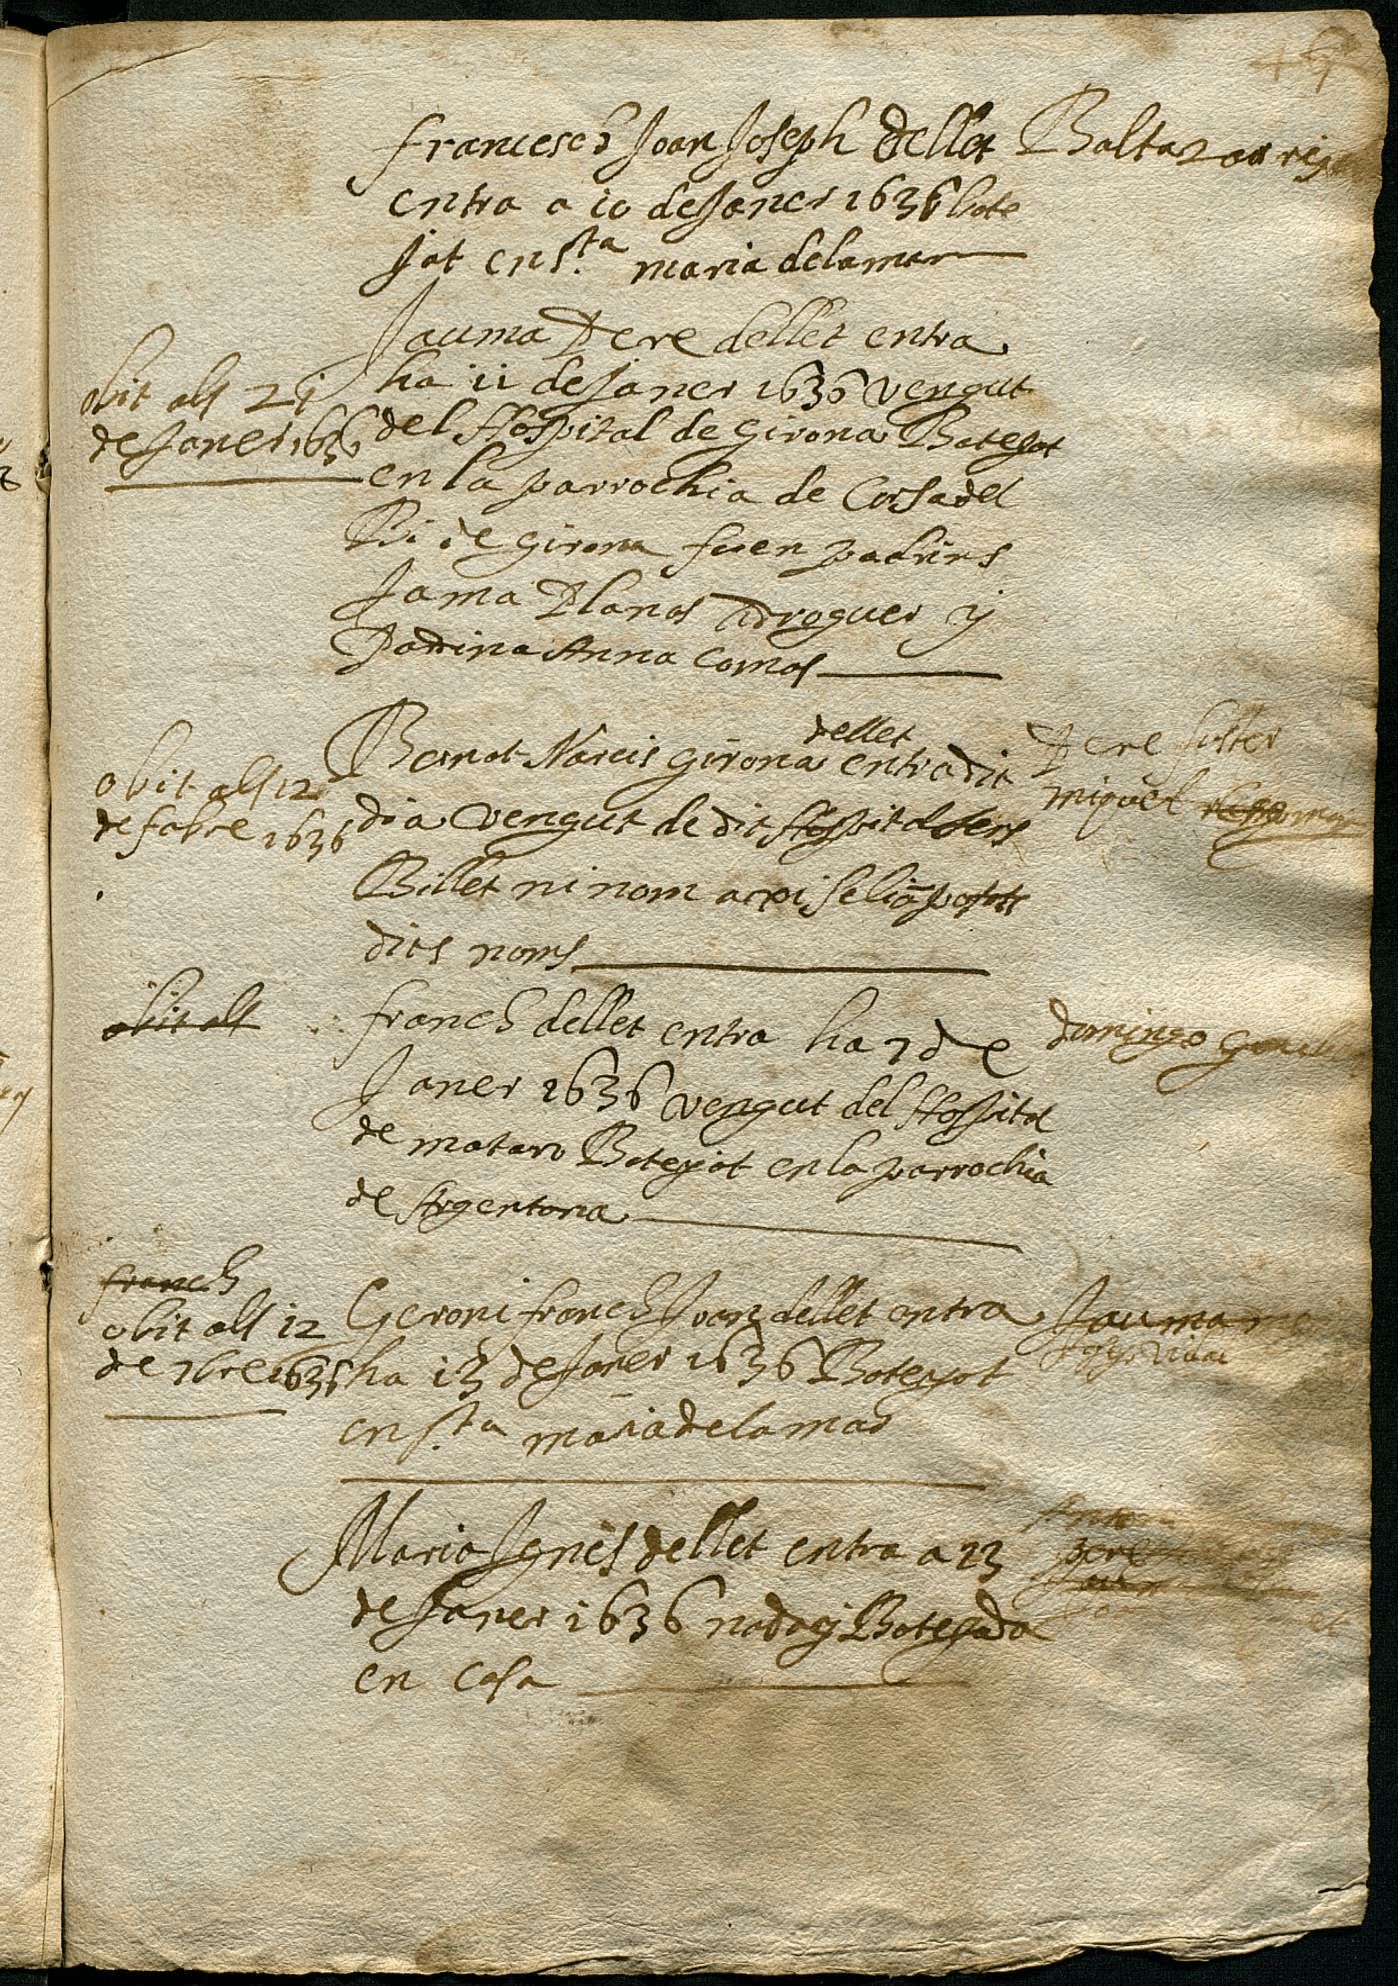 francesch Joan Joseph dellet
entra a 10 de Janer 1636 bate
jat en s.ta maria de la mar
Baltazar
Jauma Pere dellet entra
ha 11 de Janer 1636 vengut
del Hospital de Girona Batejat
en la parrochia de Corsa del
Bi de girona foen padrins
Jama Planas Adroguer y
Padrina Anna Comas
obit als 21
de Janer 1636
dellet
Bernat Narcis girona entra dit
dia vengut de dit Hospital sens
Billet ni nom axi se lia posats
dits noms
obit als 12
de fabre 1636
Pere
miquel
obit als
franch dellet entra ha 7 de
Janer 1636 vengut del Hospital
de mataro Batejat en la parrochia
de Argentona
domingo
franch
obit als 12
de 7bre 1636
Geroni franch Joan dellet entra
ha 13 de Janer 1636 Batejat
en s.ta maria de la mar
Jauma
Maria Ignes dellet entra a 23
de Janer 1636 nada y Batejada
en casa
pere